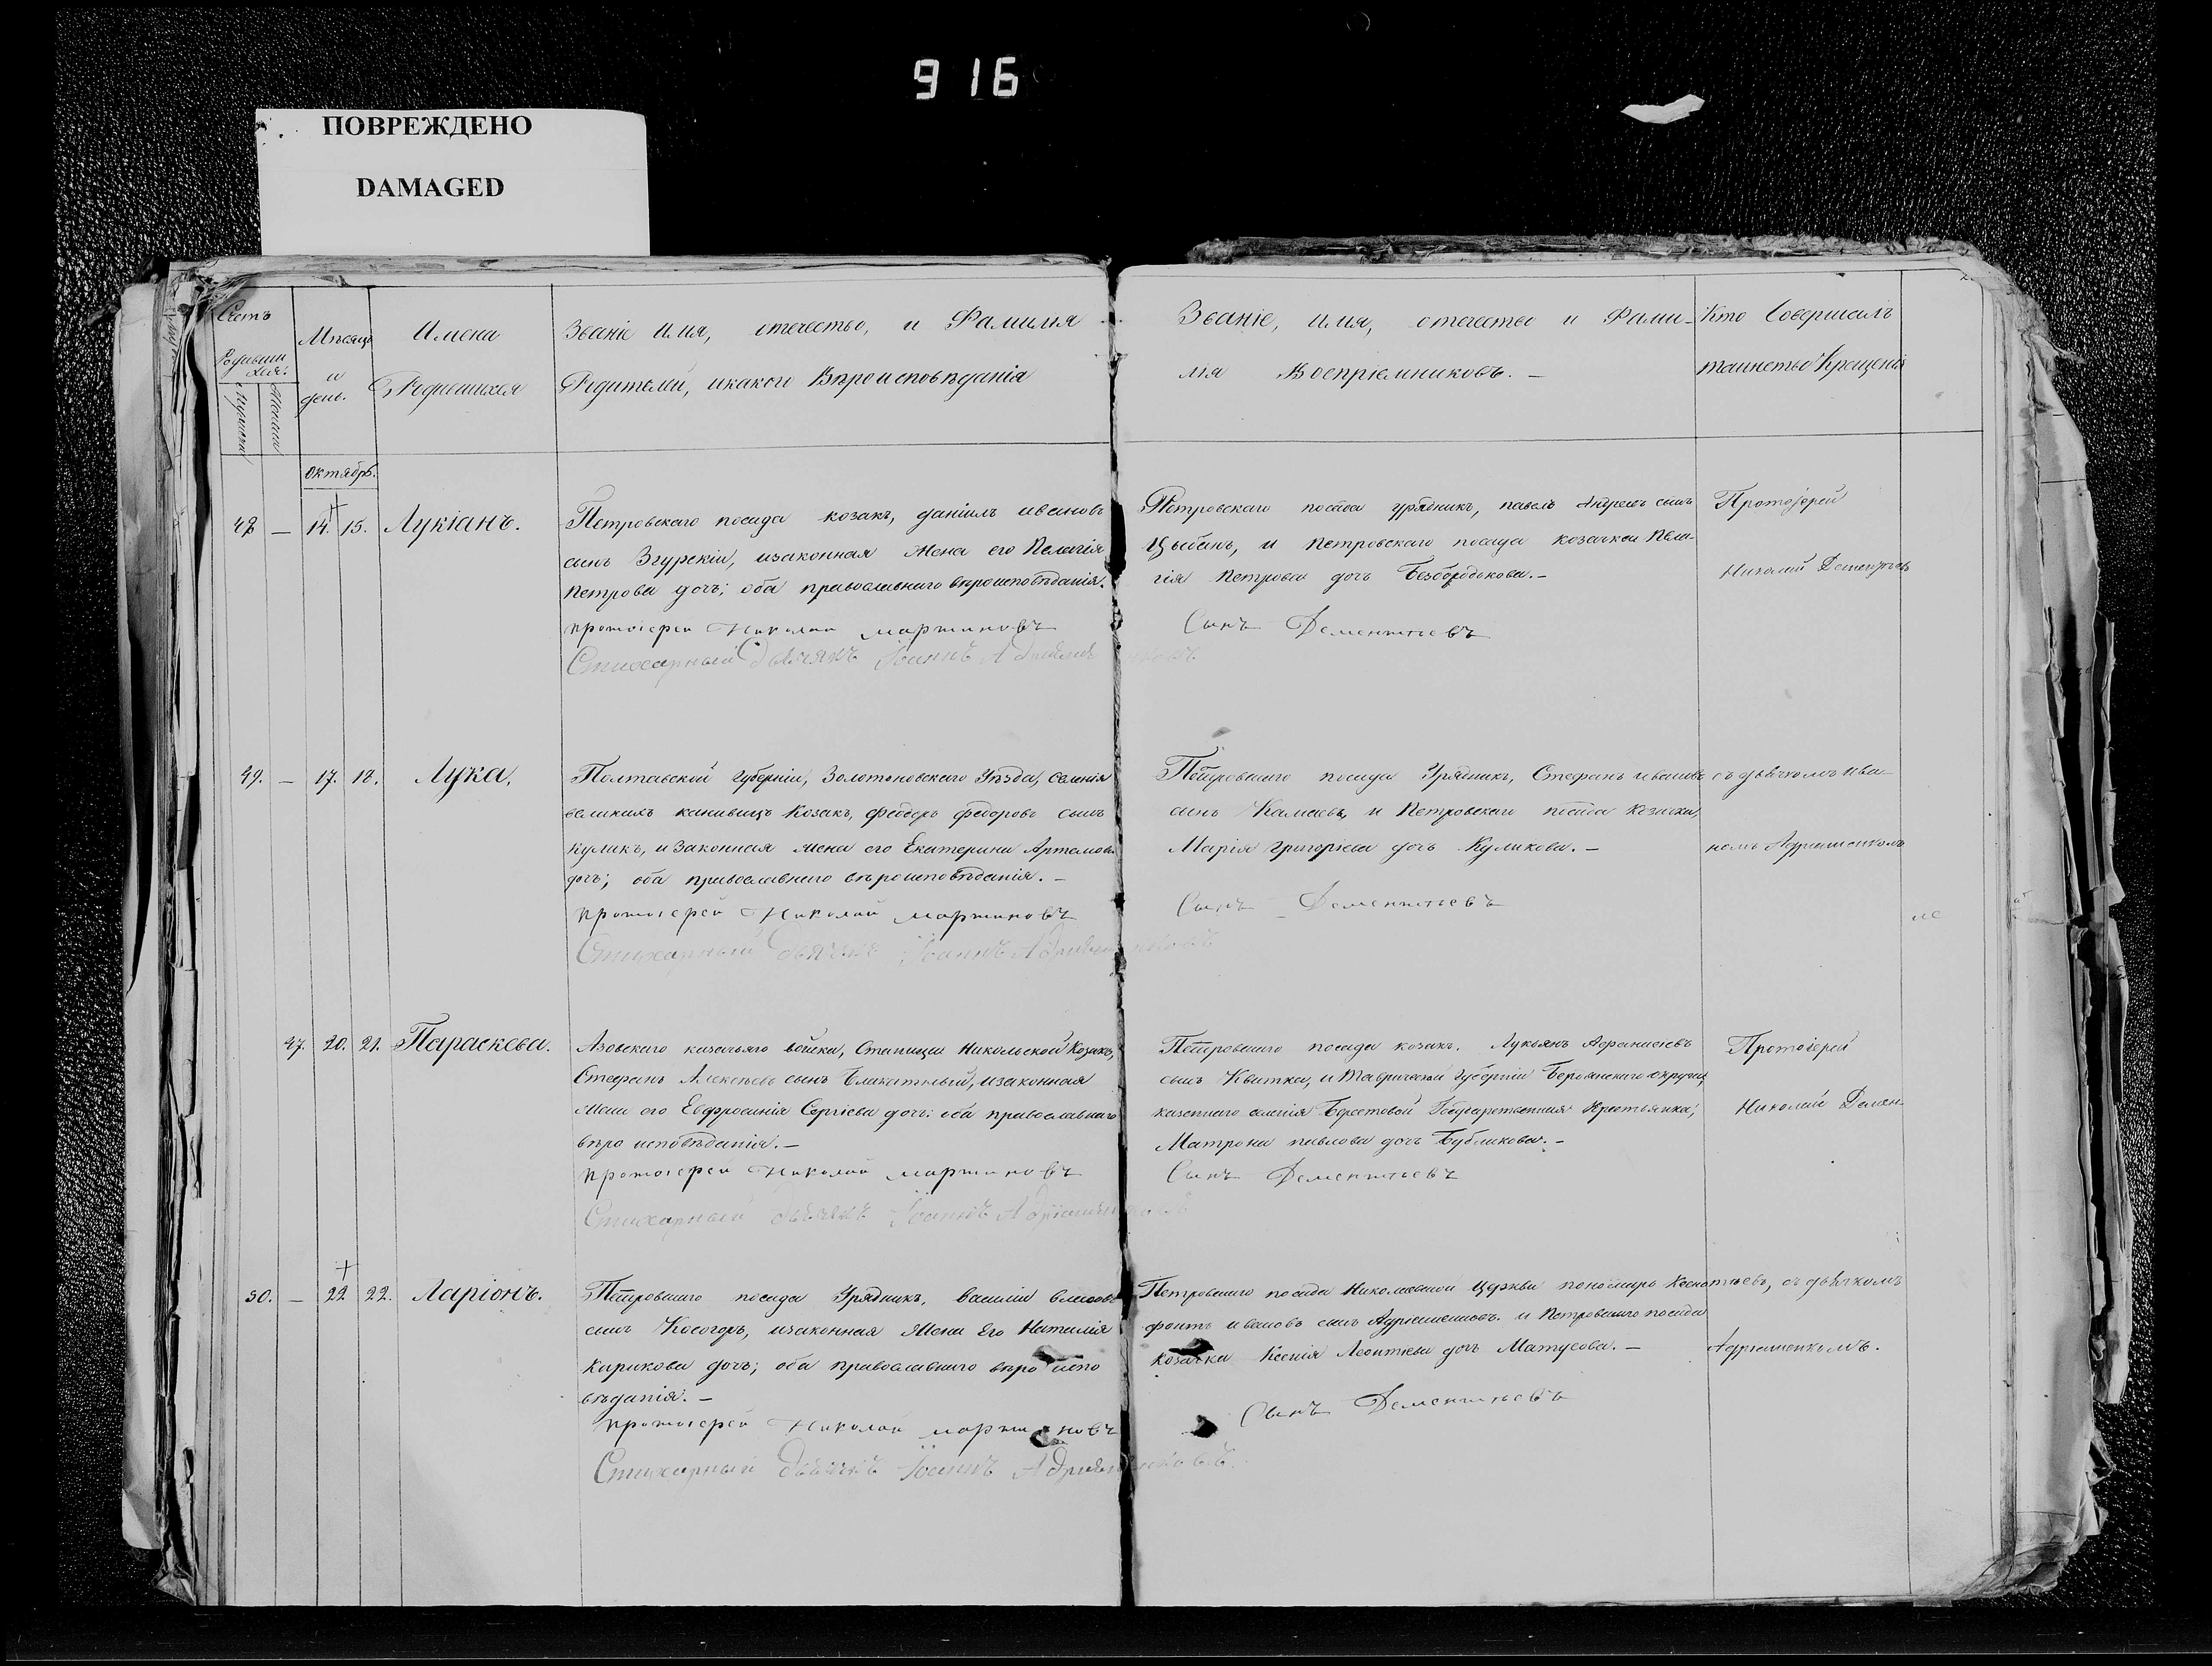 916
ПОВРЕЖДЕНО
DAMAGED
Счетъ
Родивши
хся
Мужеска
Женска
Мѣсяцъ
и
день.
Имена
Родившихся
Званіе Имя, отечество, и Фамилія
Родителей, и какого Вѣроисповѣданія
Званіе, имя, отечество и Фами-
лія Воспріемниковъ. —
Кто Совершалъ
таинство Крещенія
Октябрь.
48 — 14. 15. Лукіанъ.
Петровскаго посада козакъ, даніилъ ивановъ
сынъ Згурскій, изаконная жена его Пелагія
Петрова дочь; оба православнаго вѣроисповѣданія.
протоіерей Николай мартиновъ
Стихарный Дьячекъ Іоаннъ
Петровскаго посада урядникъ, павелъ Андреевъ сынъ
Цыбань, и Петровскаго посада козачка Пела-
гія Петрова дочь Безбородькова. —
Сынъ Дементьевъ
Протоіерей
Николай Дементьевъ
49. — 17. 18. Лука.
Полтавской губерніи, Золотоновскаго Уѣзда, селенія
великихъ канивецъ Козакъ, феодоръ федоровъ сынъ
Куликъ, и Законная жена его Екатерина Артемова
дочь; оба православнаго вѣроисповѣданія. —
протоіерей Николай мартиновъ
Стихарный Дьячекъ Іоаннъ
Петровскаго посада Урядникъ, Стефанъ ивановъ
сынъ Камаевъ, и Петровскаго посада козачка,
Марія григоріева дочь Куликова. —
Сынъ Дементьевъ
съ дьячкомъ Ива-
номъ Адріашенкомъ
47. 20. 21. Параскева.
Азовскаго казачьяго войска, Станицы Никольской Козакъ,
Стефанъ Алексѣевъ сынъ Блакитный, изаконная
жена его Евфросинія Сергіева дочь: оба православнаго
вѣро исповѣданія. —
протоіерей Николай мартиновъ
Стихарный Дьячекъ Іоаннъ
Петровскаго посада козакъ. Лукьянъ Афанасіевъ
сынъ Квитка, и Таврической губерніи Бердянскаго округа,
казеннаго селенія Берестовой Государственная Крестьянка;
Матрона павлова дочь Бубликова. —
Сынъ Дементьевъ
Протоіерей
Николай Демен-
50. — 22 22. Ларіонъ.
Петровскаго посада Урядникъ, Василій власовъ
сынъ Косогоръ, изаконная Жена Его Наталія
Карпкова дочь; оба православнаго вѣро испо
вѣданія. —
протоіерей Николай мартиновъ
Стихарный Дьячекъ Іоаннъ
Петровскаго посада Николаевской Церкви пономарь Ксено
фонтъ ивановъ сынъ Адріашенковъ. и Петровскаго посада
козачка Ксенія Леонтьева дочь Матусова. —
Сынъ Дементьевъ
тьевъ, съ дьячкомъ
Адріашенкомъ.